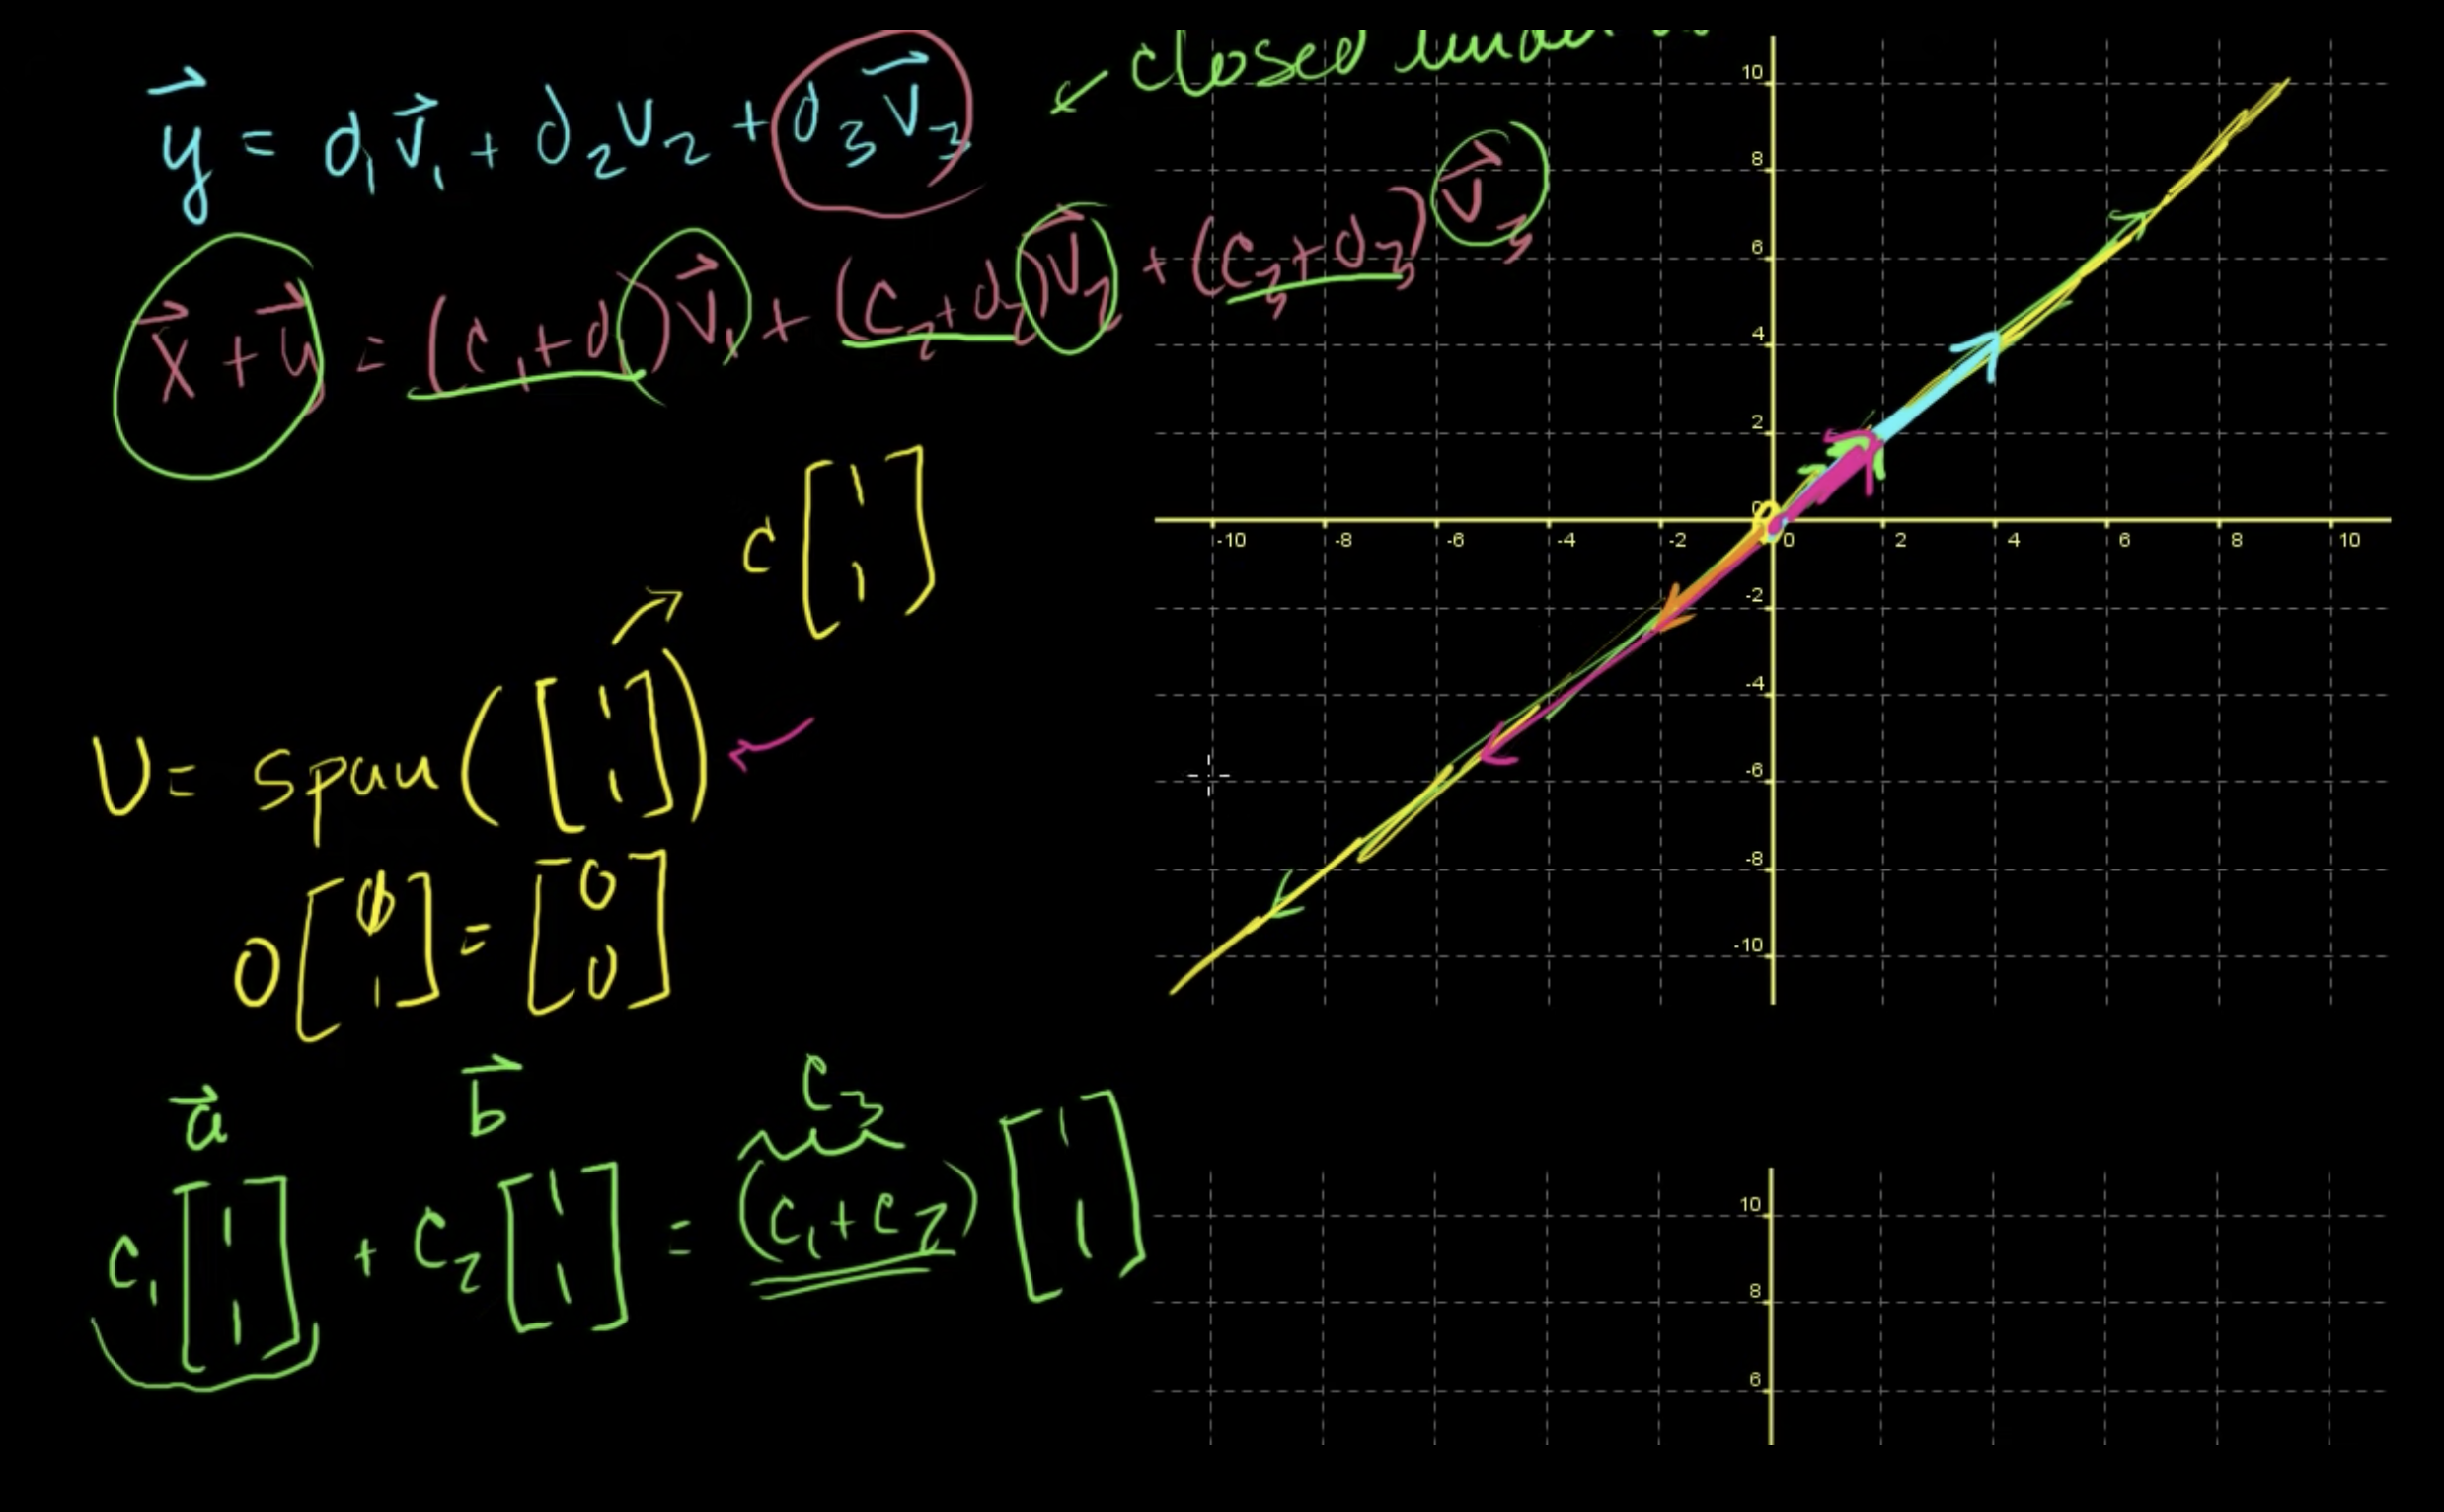 closed under
y⃗ = d₁v⃗₁ + d₂v₂ + d₃v⃗₃
x⃗ + y⃗ = (c₁+d₁)v⃗₁ + (c₂+d₂)v⃗₂ + (c₃+d₃)v⃗₃
c [1 1]
U = span([1 1])
0 [1 1] = [0 0]
a⃗ b⃗ c₃
c₁ [1 1] + c₂ [1 1] = (c₁+c₂) [1 1]
10
8
6
4
2
0
-10 -8 -6 -4 -2 0 2 4 6 8 10
-2
-4
-6
-8
-10
10
8
6